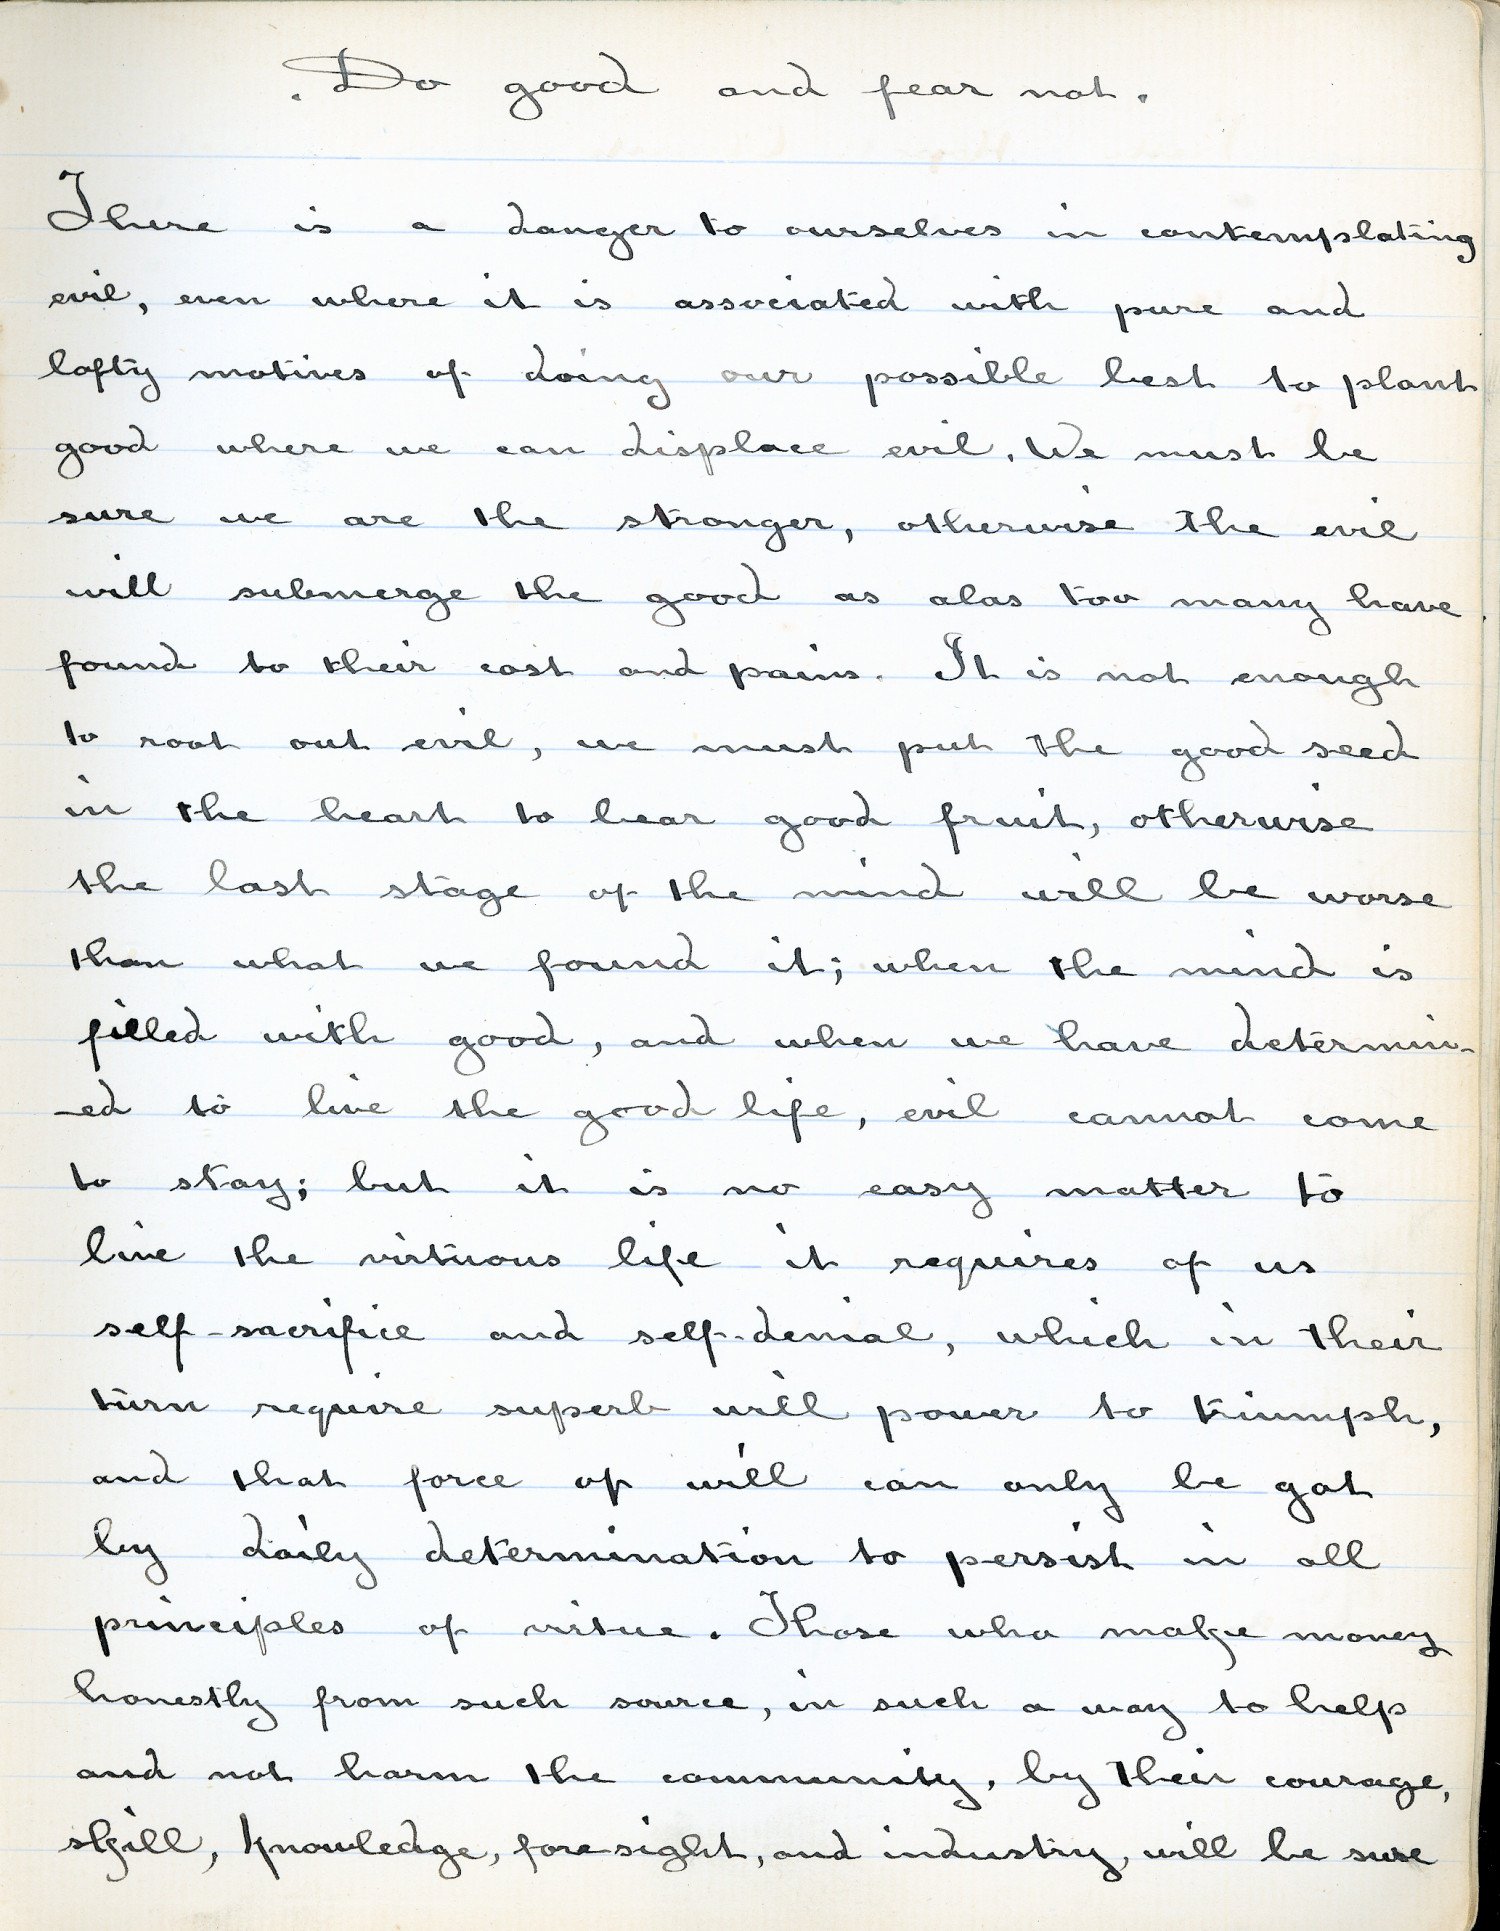 . Do good and fear not.
There is a danger to ourselves in contemplating
evil, even where it is associated with pure and
lofty motives of doing our possible best to plant
good where we can displace evil. We must be
sure we are the stronger, otherwise the evil
will submerge the good as alas too many have
found to their cost and pains. It is not enough
to root out evil, we must put the good seed
in the heart to bear good fruit, otherwise
the last stage of the mind will be worse
than what we found it; when the mind is
filled with good, and when we have determin-
-ed to live the good life, evil cannot come
to stay; but it is no easy matter to
live the virtuous life it requires of us
self-sacrifice and self-denial, which in their
turn require superb will power to triumph,
and that force of will can only be got
by daily determination to persist in all
principles of virtue. Those who make money
honestly from such source, in such a way to help
and not harm the community, by their courage,
skill, knowledge, foresight, and industry, will be sure